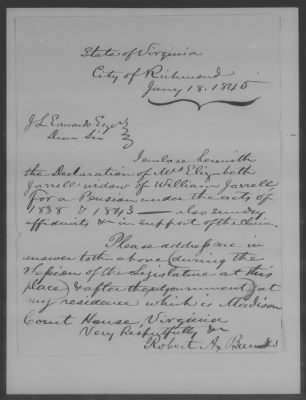 State of Virginia
City of Richmond
Jany 18. 1845
J L Edwards Esqr
Dear Sir
I enclose herewith
the Declaration of Mrs Elizabeth
Jarrell widow of William Jarrell
for a Pension under the acts of
1838 & 1843 — also sunday
affidavits &c in support of the claim.
Please address me in
answer to the above (during the
Session of the Legislature at this
place) & after the adjournment) at
my residence which is Madison
Court House, Virginia
Very Respectfully &c
Robert A